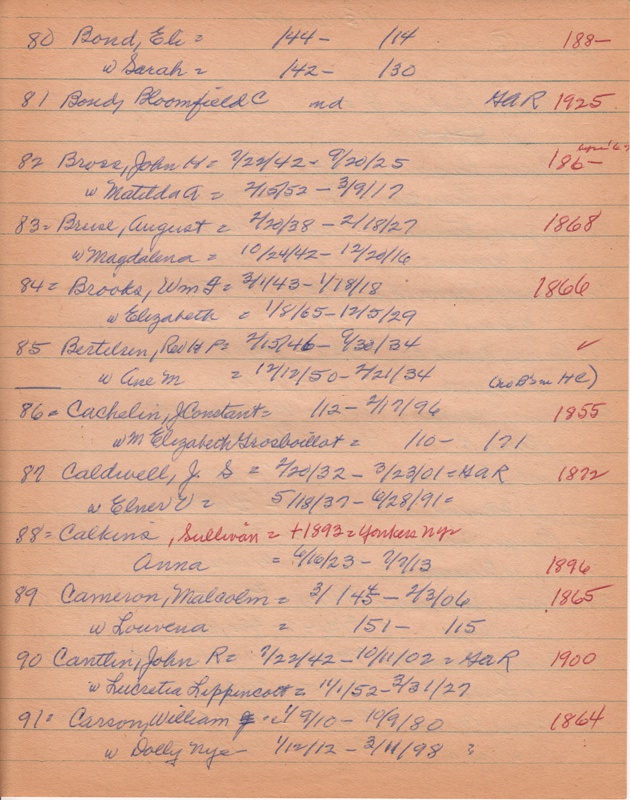 80 Bond, Eli = /44 - /14 188-
w Sarah = /42 - /30
81 Bond, Bloomfield C nd GAR 1925
82 Bross, John H = 7/22/42 - 9/20/25 186-
w Matilda A = 2/15/52 - 3/9/17
83 = Bruse, August = 2/20/38 - 2/18/27 1868
w Magdalena = 10/24/42 - 12/20/16
84 = Brooks, Wm F = 3/1/43 - 1/18/18 1866
w Elizabeth = 1/8/65 - 12/5/29
85 Bertelsen, Rev H P = 2/15/46 - 9/30/34 ✓
w Ane M = 12/12/50 - 2/21/34
86 = Cachelin, J Constant = /12 - 2/17/96 1855
w M Elizabeth Grosboillot = /10 - /71
87 Caldwell, J. S = 2/20/32 - 3/23/01 = GAR 1872
w Elner V = 5/18/37 - 6/28/91 =
88 = Calkins, Sullivan = +1893 = Yonkers NY
Anna = 6/16/23 - 7/7/13 1896
89 Cameron, Malcolm = 3/ /45 - 2/3/06 1865
w Louvena = /51 - /15
90 Cantlin, John R = 7/22/42 - 10/11/02 = GAR 1900
w Lucretia Lippencott = 11/1/52 - 3/31/27
91 = Carson, William 9/10 - 10/9/80 1864
w Dolly Nye 1/12/12 - 3/11/98 ?